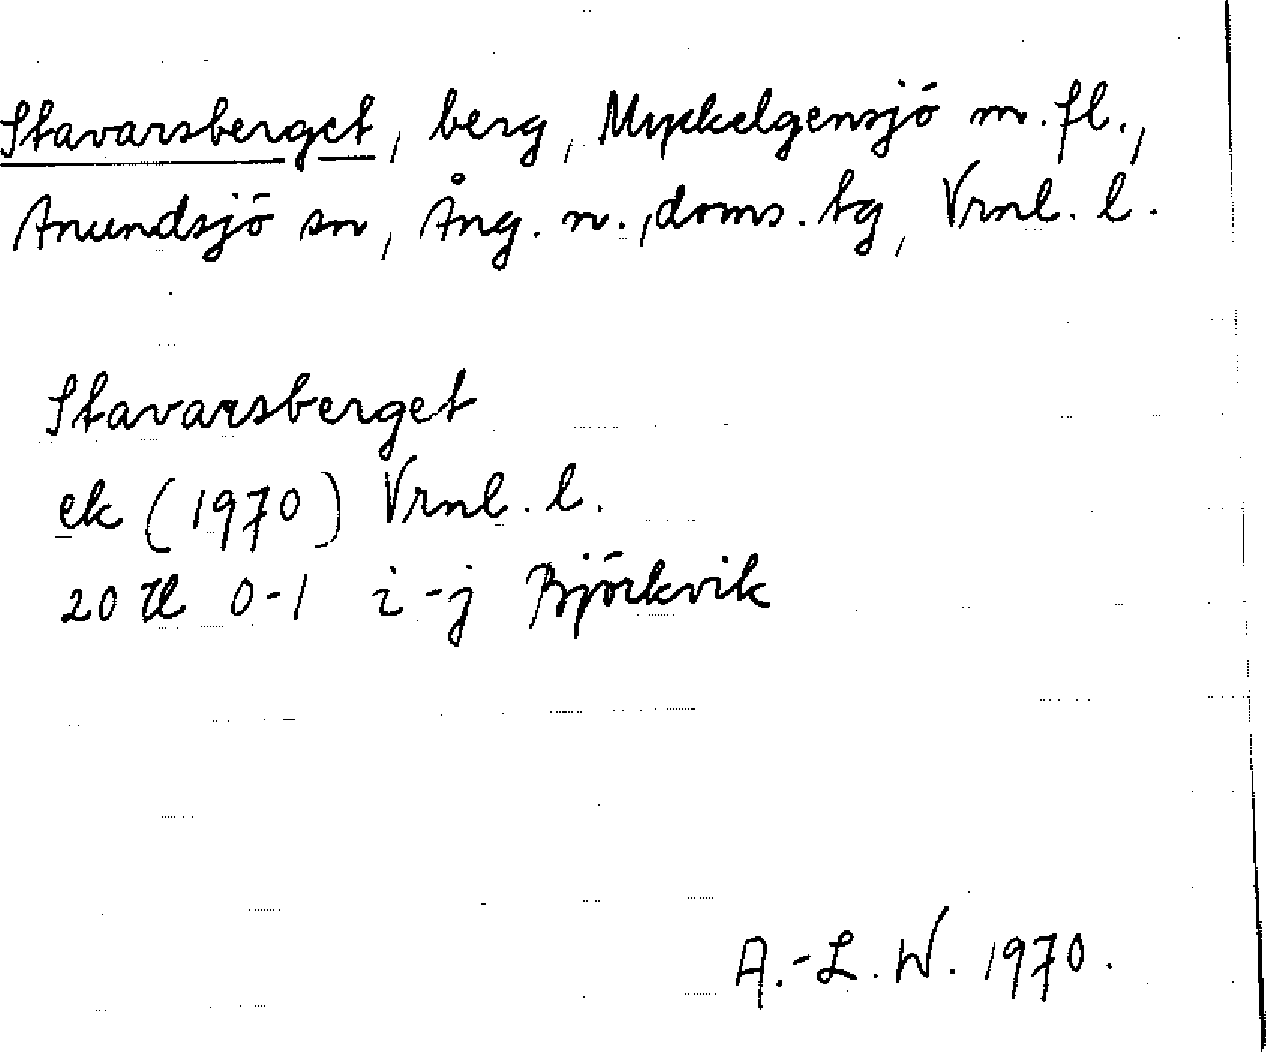 Stavarsberget, berg, Myckelgensjö m. fl.,
Anundsjö sn, Ång. n., doms. tg, Vrnl. l.
Stavarsberget
ek (1970) Vrnl. l.
20 H 0-1 i-j Björkvik
A.-L. W. 1970.